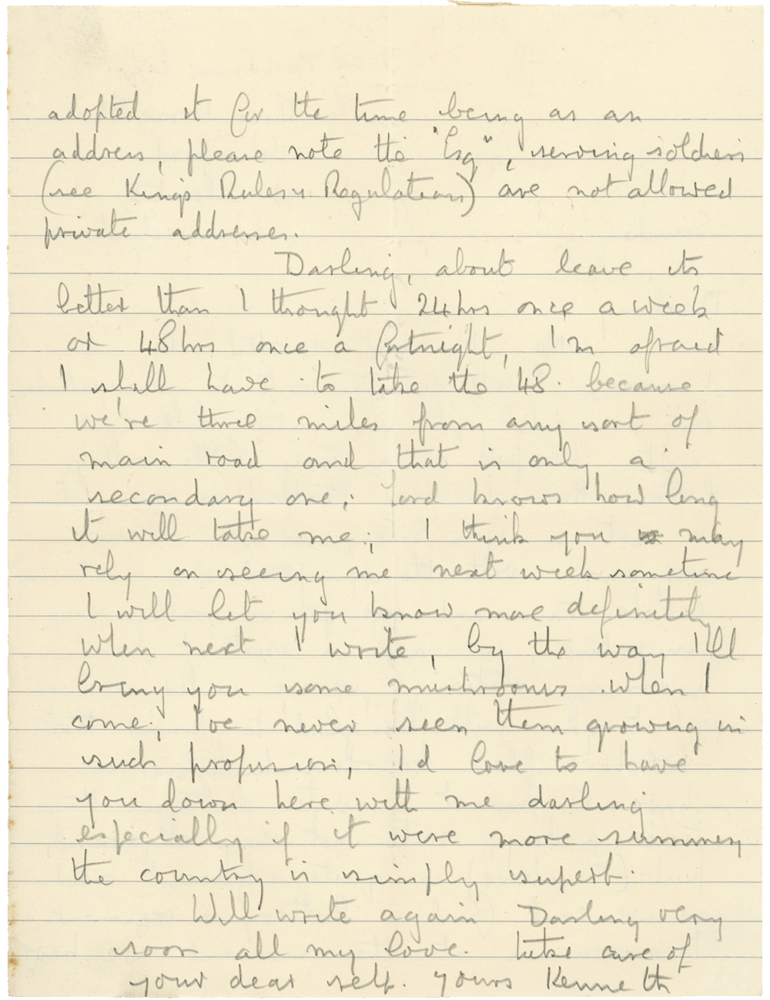 adopted it for the time being as an
address, please note the "Esq", serving soldiers
(see King's Rules & Regulations) are not allowed
private addresses.
Darling, about leave its
better than I thought 24hrs once a week
or 48hrs once a fortnight, I'm afraid
I shall have to take the 48. because
we're three miles from any sort of
main road and that is only a
secondary one; Lord knows how long
it will take me; I think you may
rely on seeing me next week sometime
I will let you know more definitely
when next I write, by the way I'll
bring you some mushrooms when I
come; I've never seen them growing in
such profusion, I'd love to have
you down here with me darling
especially if it were more summery
the country is simply superb.
Will write again Darling very
soon all my love. take care of
your dear self. yours Kenneth